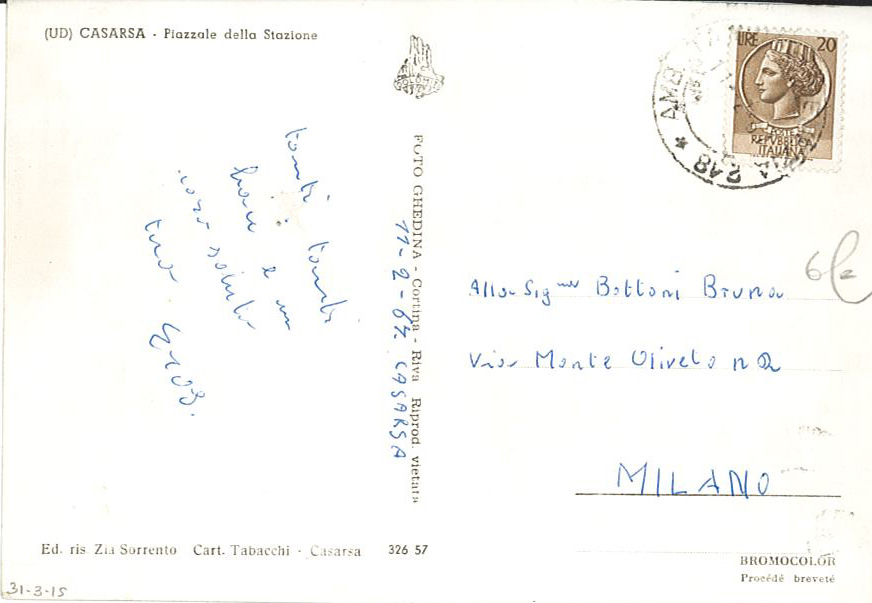 (UD) CASARSA - Piazzale della Stazione
LIRE 20
POSTE
REPVBBLICA
ITALIANA
AMB
248
tanti tanti
baci e un
caro saluto
tuo Eros.
FOTO GHEDINA - Cortina - Riva Riprod. vietata
11-2-67 CASARSA
6/e
Alla Sig.na Bottoni Bruna
Via Monte Oliveto n 2
MILANO
Ed. ris. Zia Sorrento Cart. Tabacchi - Casarsa 326 57
BROMOCOLOR
Procédé breveté
31-3-15